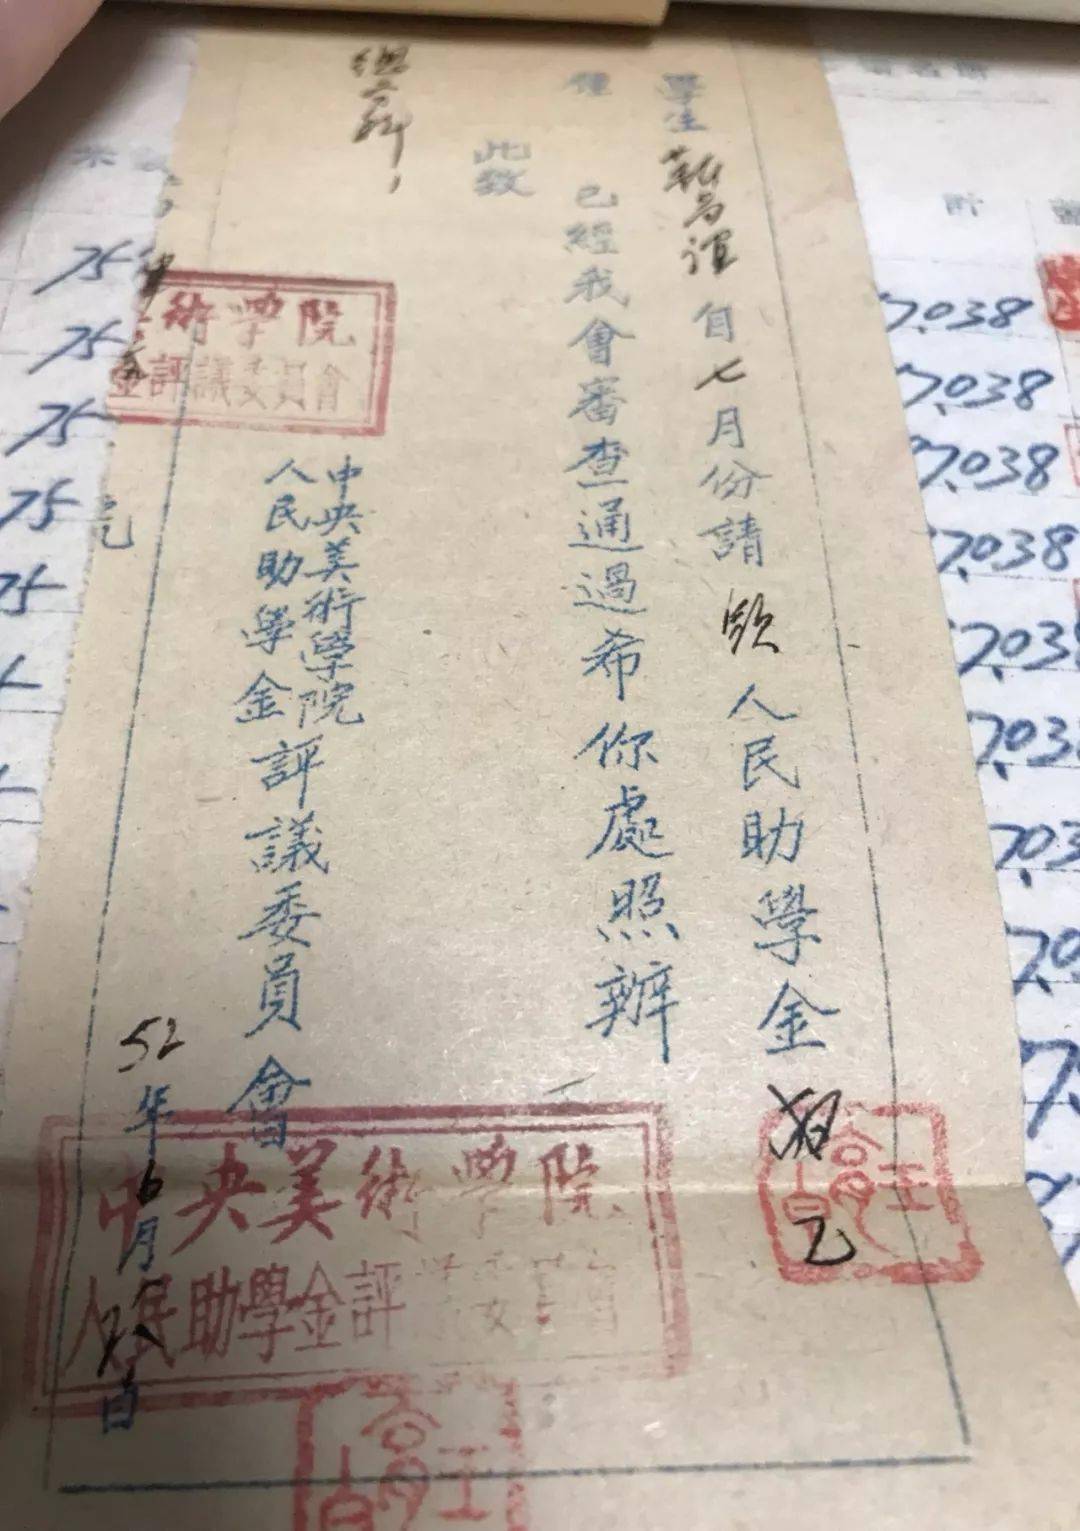 學生靳尚谊自七月份請领人民助學金
乙
種
已經我會審查通過希你處照辦
此致
總務科
中央美術學院
人民助學金評議委員會
52年6月28日
術學院
金評議委員會
中央美術學院
人民助學金評議委員會
計
75
75
75
75
75
7.038
7.038
7.038
7.038